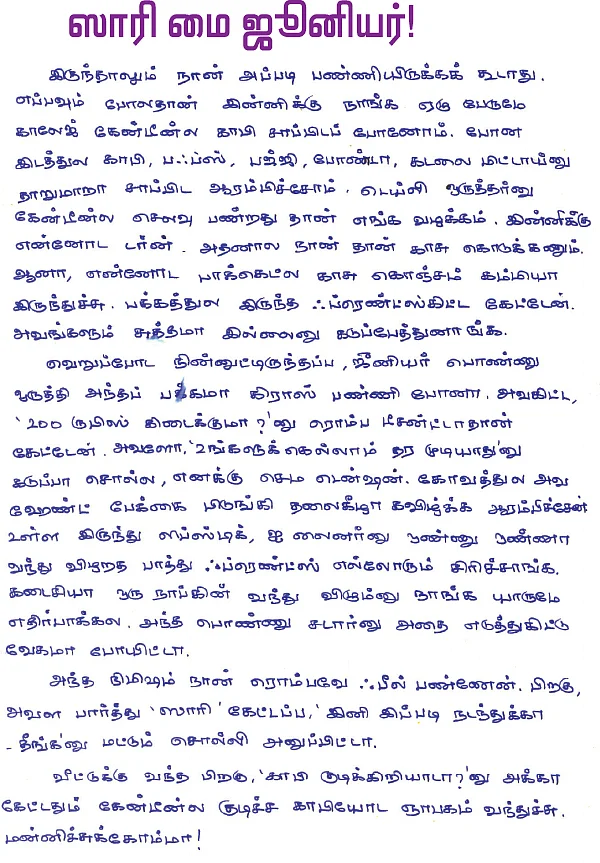 ஸாரி மை ஜூனியர்!
இருந்தாலும் நான் அப்படி பண்ணியிருக்கக் கூடாது.
எப்பவும் போலதான் இன்னிக்கு நாங்க ஏழு பேருமே
காலேஜ் கேண்டீன்ல காபி சாப்பிடப் போனோம். போன
இடத்துல காபி, பஃப்ஸ், பஜ்ஜி, போண்டா, கடலை மிட்டாய்னு
தாறுமாறா சாப்பிட ஆரம்பிச்சோம். டெய்லி ஒருத்தர்னு
கேண்டீன்ல செலவு பண்றது தான் எங்க வழக்கம். இன்னிக்கு
என்னோட டர்ன். அதனால நான் தான் காசு கொடுக்கணும்.
ஆனா, என்னோட பாக்கெட்ல காசு கொஞ்சம் கம்மியா
இருந்துச்சு. பக்கத்துல இருந்த ஃப்ரெண்ட்ஸ்கிட்ட கேட்டேன்.
அவங்களும் சுத்தமா இல்லைனு கடுப்பேத்துனாங்க.
வெறுப்போட நின்னுட்டிருந்தப்ப, ஜூனியர் பொண்ணு
ஒருத்தி அந்தப் பக்கமா கிராஸ் பண்ணி போனா. அவகிட்ட,
'200 ருபீஸ் கிடைக்குமா?'னு ரொம்ப டீசன்ட்டாதான்
கேட்டேன். அவளோ, 'உங்களுக்கெல்லாம் தர முடியாது'னு
கடுப்பா சொல்ல, எனக்கு செம டென்ஷன். கோவத்துல அவ
ஹேண்ட் பேக்கை பிடுங்கி தலைகீழா கவிழ்க்க ஆரம்பிச்சேன்
உள்ள இருந்து லிப்ஸ்டிக், ஐ லைனர்னு ஒண்ணு ஒண்ணா
வந்து விழறத பாத்து ஃப்ரெண்ட்ஸ் எல்லோரும் சிரிச்சாங்க.
கடைசியா ஒரு நாப்கின் வந்து விழும்னு நாங்க யாருமே
எதிர்பாக்கல. அந்த பொண்ணு சடார்னு அதை எடுத்துகிட்டு
வேகமா போயிட்டா.
அந்த நிமிஷம் நான் ரொம்பவே ஃபீல் பண்ணேன். பிறகு,
அவள பார்த்து 'ஸாரி' கேட்டப்ப, 'இனி இப்படி நடந்துக்கா
- தீங்க'னு மட்டும் சொல்லி அனுப்பிட்டா.
வீட்டுக்கு வந்த பிறகு, 'காபி குடிக்கிறியாடா?'னு அக்கா
கேட்டதும் கேண்டீன்ல குடிச்ச காபியோட ஞாபகம் வந்துச்சு.
மன்னிச்சுக்கோம்மா!